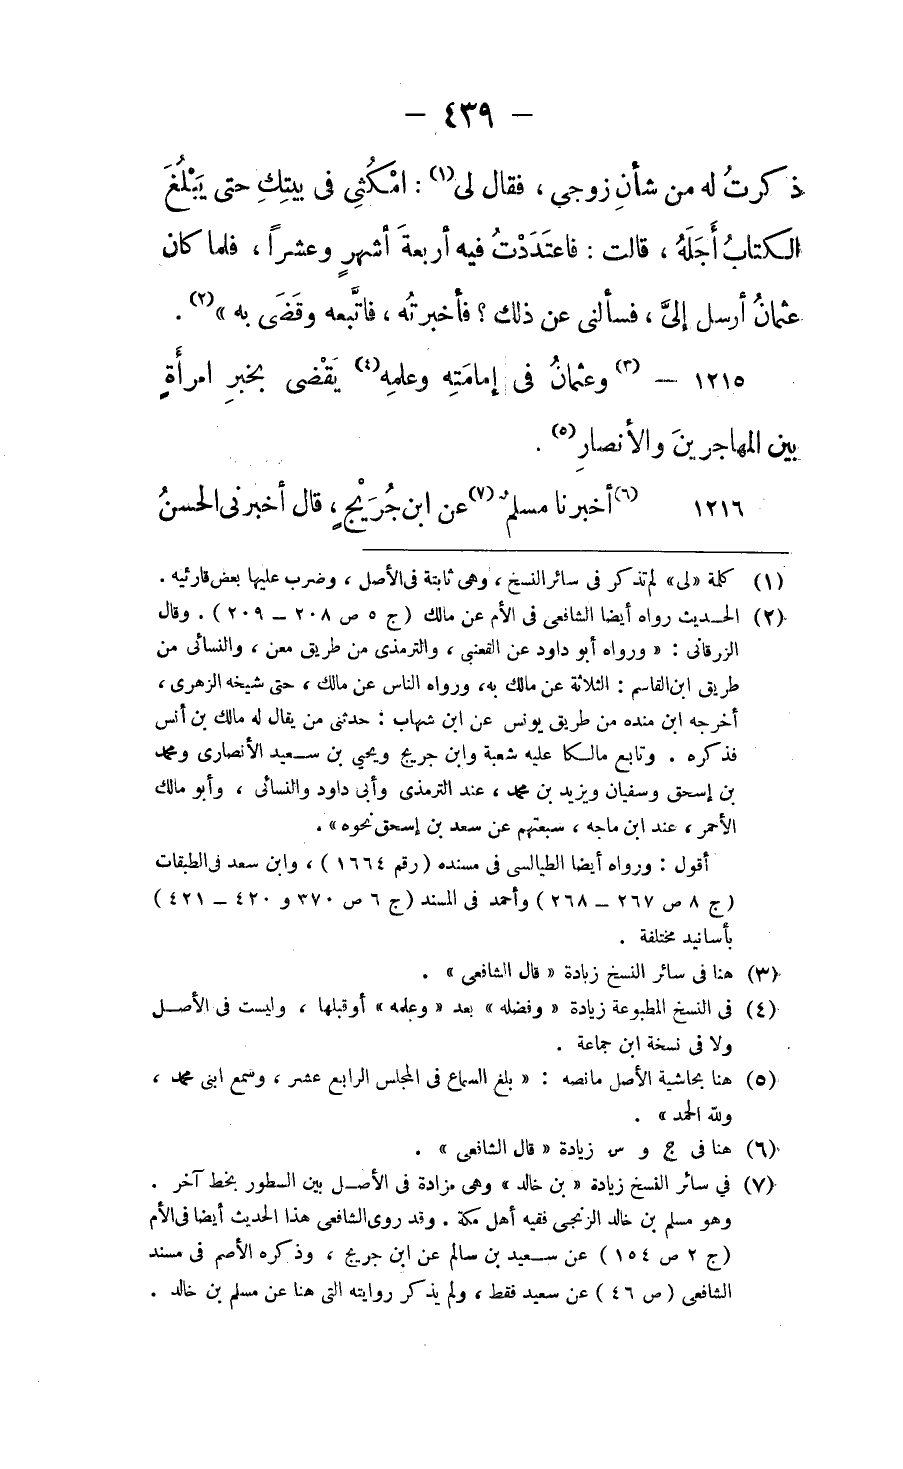 — ٤٣٩ —
ذكرتُ له من شأنِ زوجي ، فقال لى(١) : امْكُثِي فى بيتِكِ حتى يَبْلُغَ
الكتابُ أَجَلَهُ ، قالت : فاعتَدَدْتُ فيه أربعةَ أشهرٍ وعشراً ، فلما كان
عثمانُ أرسل إلىَّ ، فسألنى عن ذلك ؟ فأخبرتُه ، فاتَّبعه وقَضَى به »(٢) .
١٢١٥ — (٣) وعثمانُ فى إمامَتِه وعلمِه(٤) يَقْضى بخبرِ امرأةٍ
بين المهاجرينَ والأنصارِ(٥) .
١٢١٦ (٦) أخبرنا مسلمٌ(٧) عن ابن جُرَيْجٍ ، قال أخبرنى الحسنُ
(١) كلمة «لى» لم تذكر فى سائر النسخ ، وهى ثابتة فى الأصل ، وضرب عليها بعض قارئيه .
(٢) الحـديث رواه أيضا الشافعى فى الأم عن مالك (ج ٥ ص ٢٠٨ — ٢٠٩) . وقال
الزرقانى : « ورواه أبو داود عن القعنبى ، والترمذى من طريق معن ، والنسائى من
طريق ابن القاسم : الثلاثة عن مالك به، ورواه الناس عن مالك ، حتى شيخه الزهرى ،
أخرجه ابن منده من طريق يونس عن ابن شهاب : حدثنى من يقال له مالك بن أنس
فذكره . وتابع مالـكا عليه شعبة وابن جريج ويحيى بن سـعيد الأنصارى ومحمد
بن إسحق وسفيان ويزيد بن محمد ، عند الترمذى وأبى داود والنسائى ، وأبو مالك
الأحمر ، عند ابن ماجه ، سبعتهم عن سعد بن إسحق نحوه » .
أقول : ورواه أيضا الطيالسى فى مسنده (رقم ١٦٦٤) ، وابن سعد فى الطبقات
(ج ٨ ص ٢٦٧ — ٢٦٨) وأحمد فى المسند (ج ٦ ص ٣٧٠ و ٤٢٠ — ٤٢١)
بأسانيد مختلفة .
(٣) هنا فى سائر النسخ زيادة « قال الشافعى » .
(٤) فى النسخ المطبوعة زيادة « وفضله » بعد « وعلمه » أو قبلها ، وليست فى الأصـل
ولا فى نسخة ابن جماعة .
(٥) هنا بحاشية الأصل مانصه : « بلغ السماع فى المجلس الرابع عشر ، وسمع ابنى محمد ،
ولله الحمد » .
(٦) هنا فى ج و س زيادة « قال الشافعى » .
(٧) في سائر النسخ زيادة « بن خالد » وهى مزادة فى الأصـل بين السطور بخط آخر .
وهو مسلم بن خالد الزنجى فقيه أهل مكة . وقد روى الشافعى هذا الحديث أيضا فى الأم
(ج ٢ ص ١٥٤) عن سـعيد بن سالم عن ابن جريج ، وذكره الأصم فى مسند
الشافعى (ص ٤٦) عن سعيد فقط ، ولم يذكر روايته التى هنا عن مسلم بن خالد .